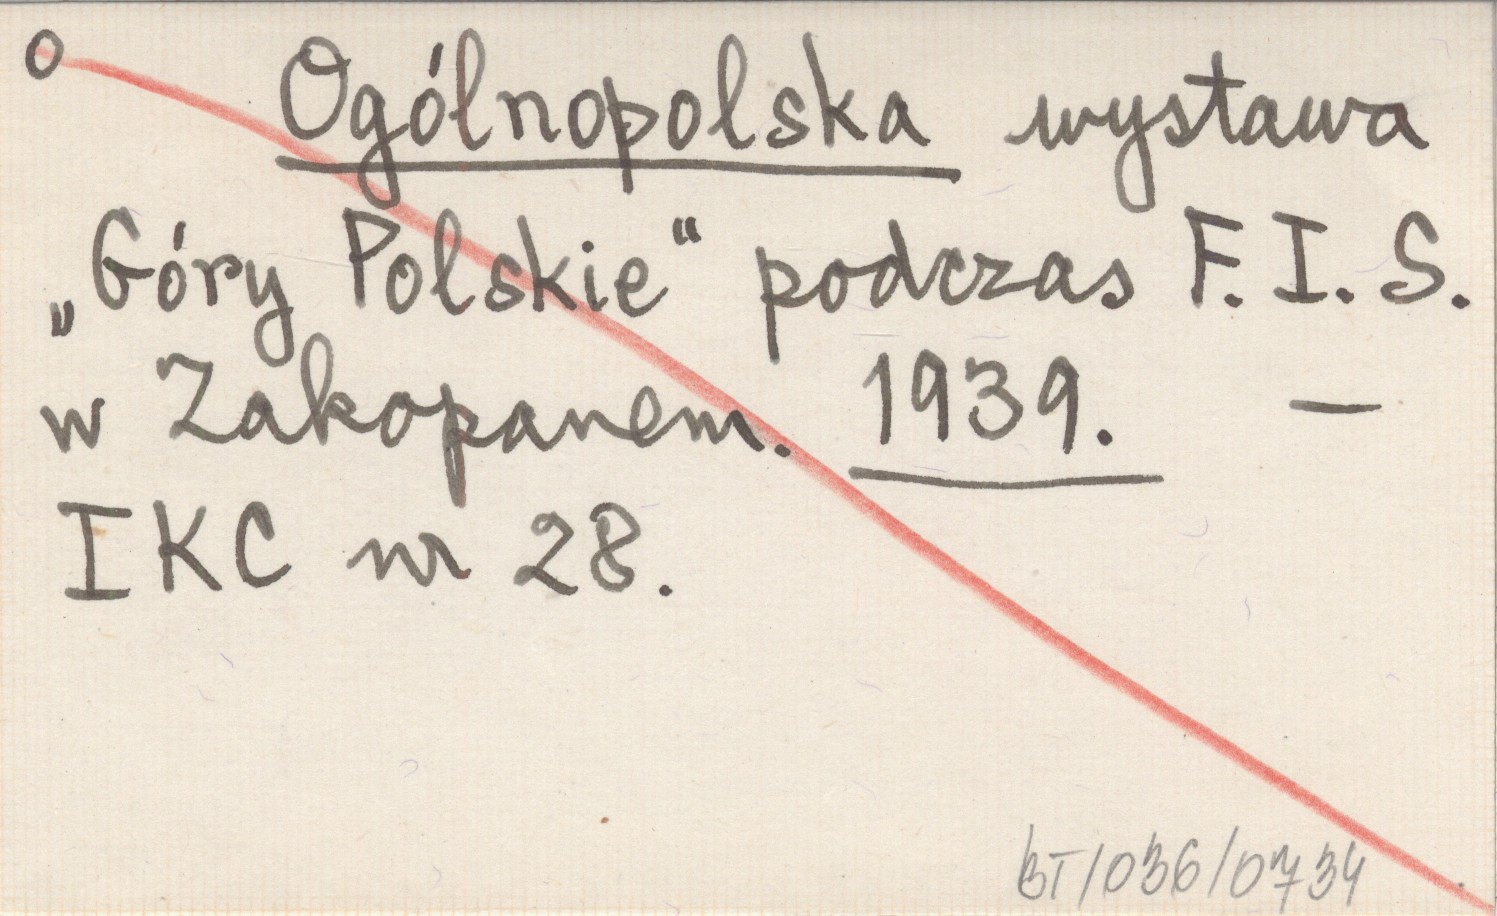 O Ogólnopolska wystawa
„Góry Polskie“ podczas F.I.S.
w Zakopanem. 1939. —
IKC nr 28.
BT/036/0734